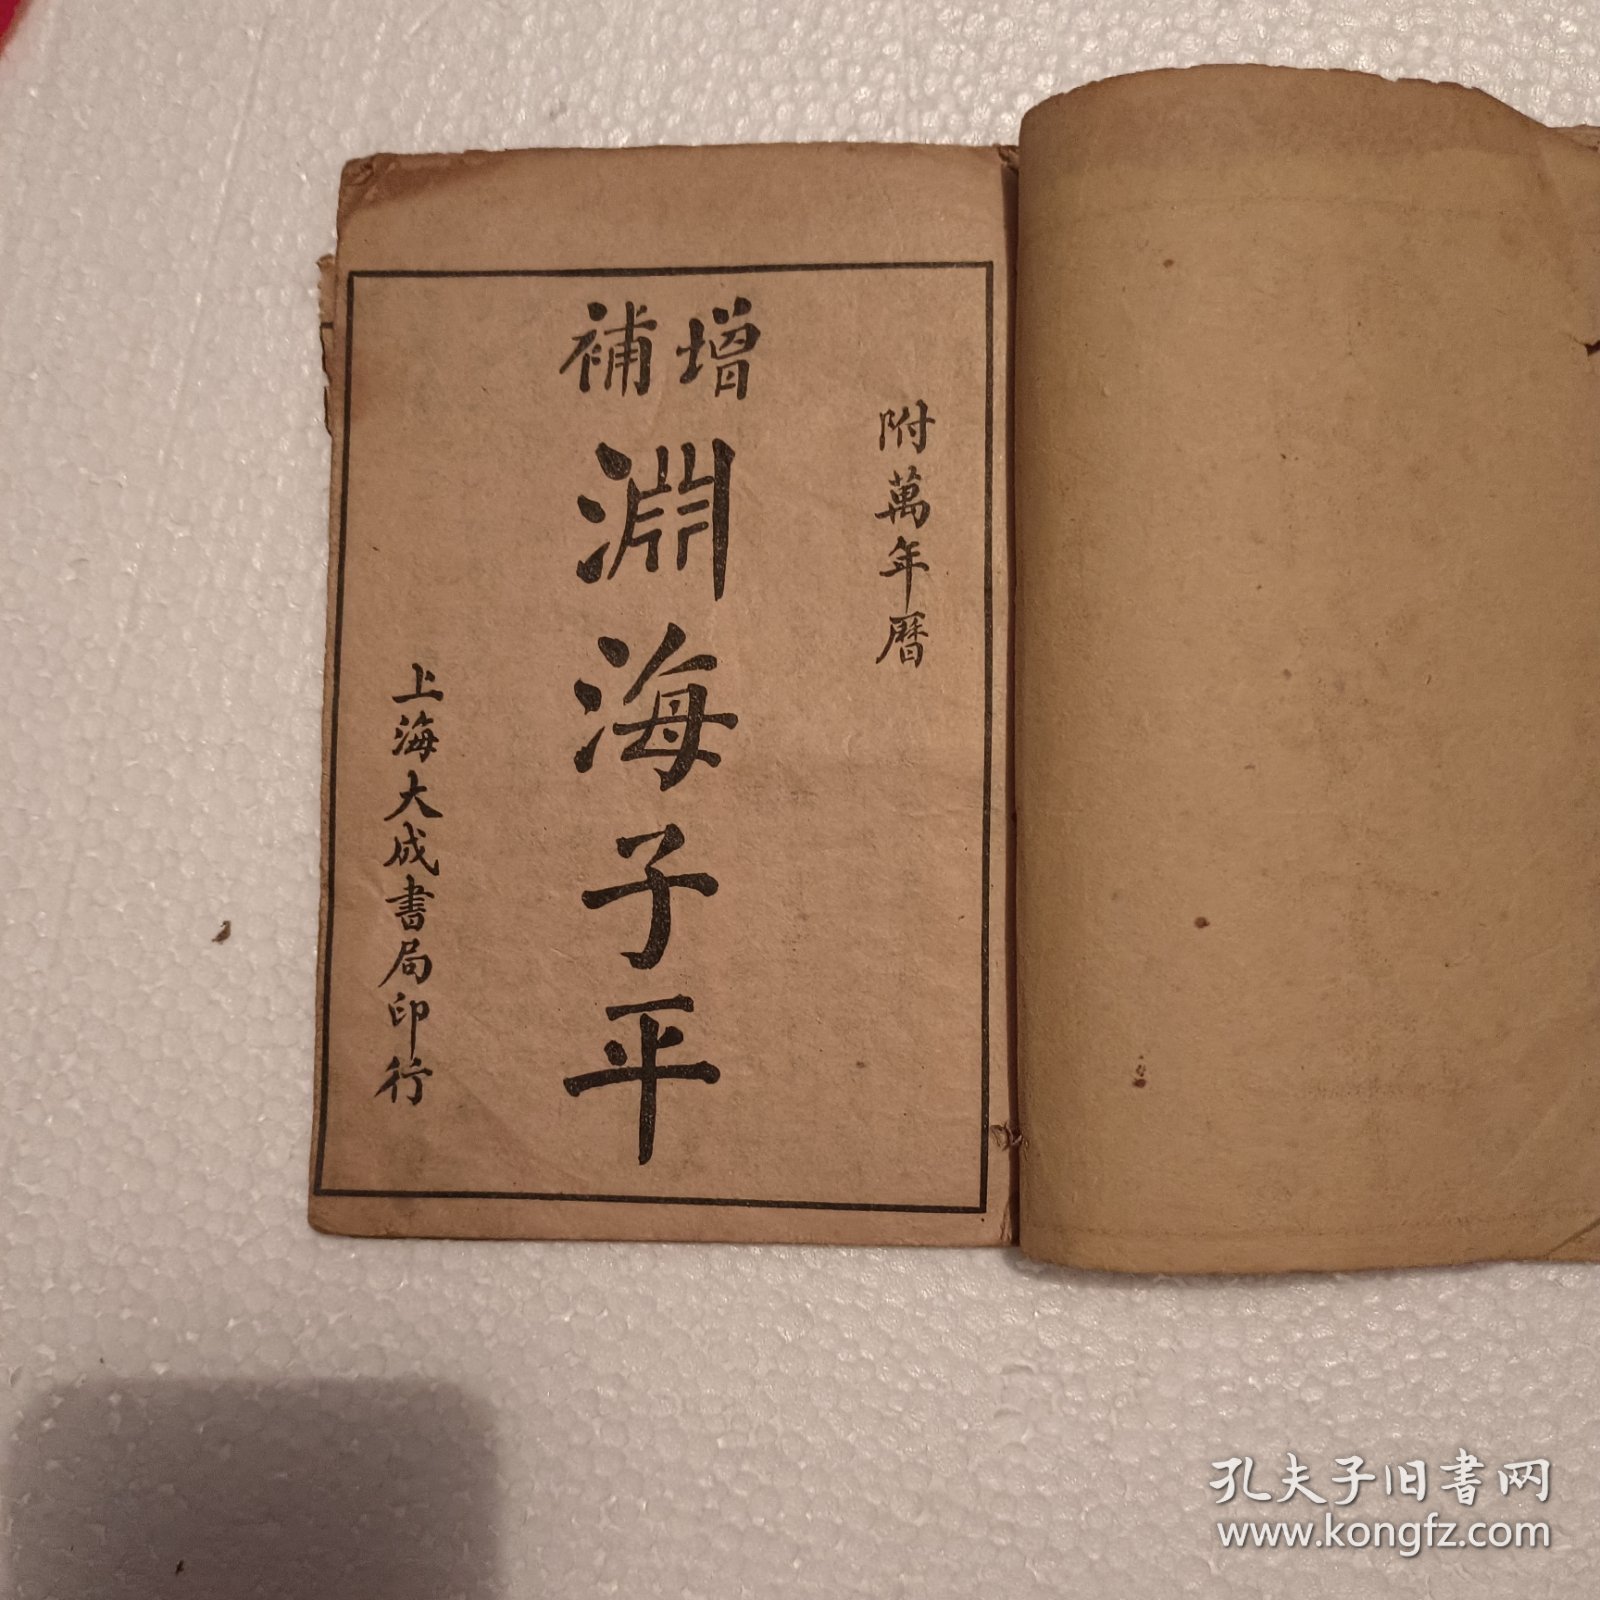 附萬年曆
增補
淵海子平
上海大成書局印行
孔夫子旧书网
www.kongfz.com